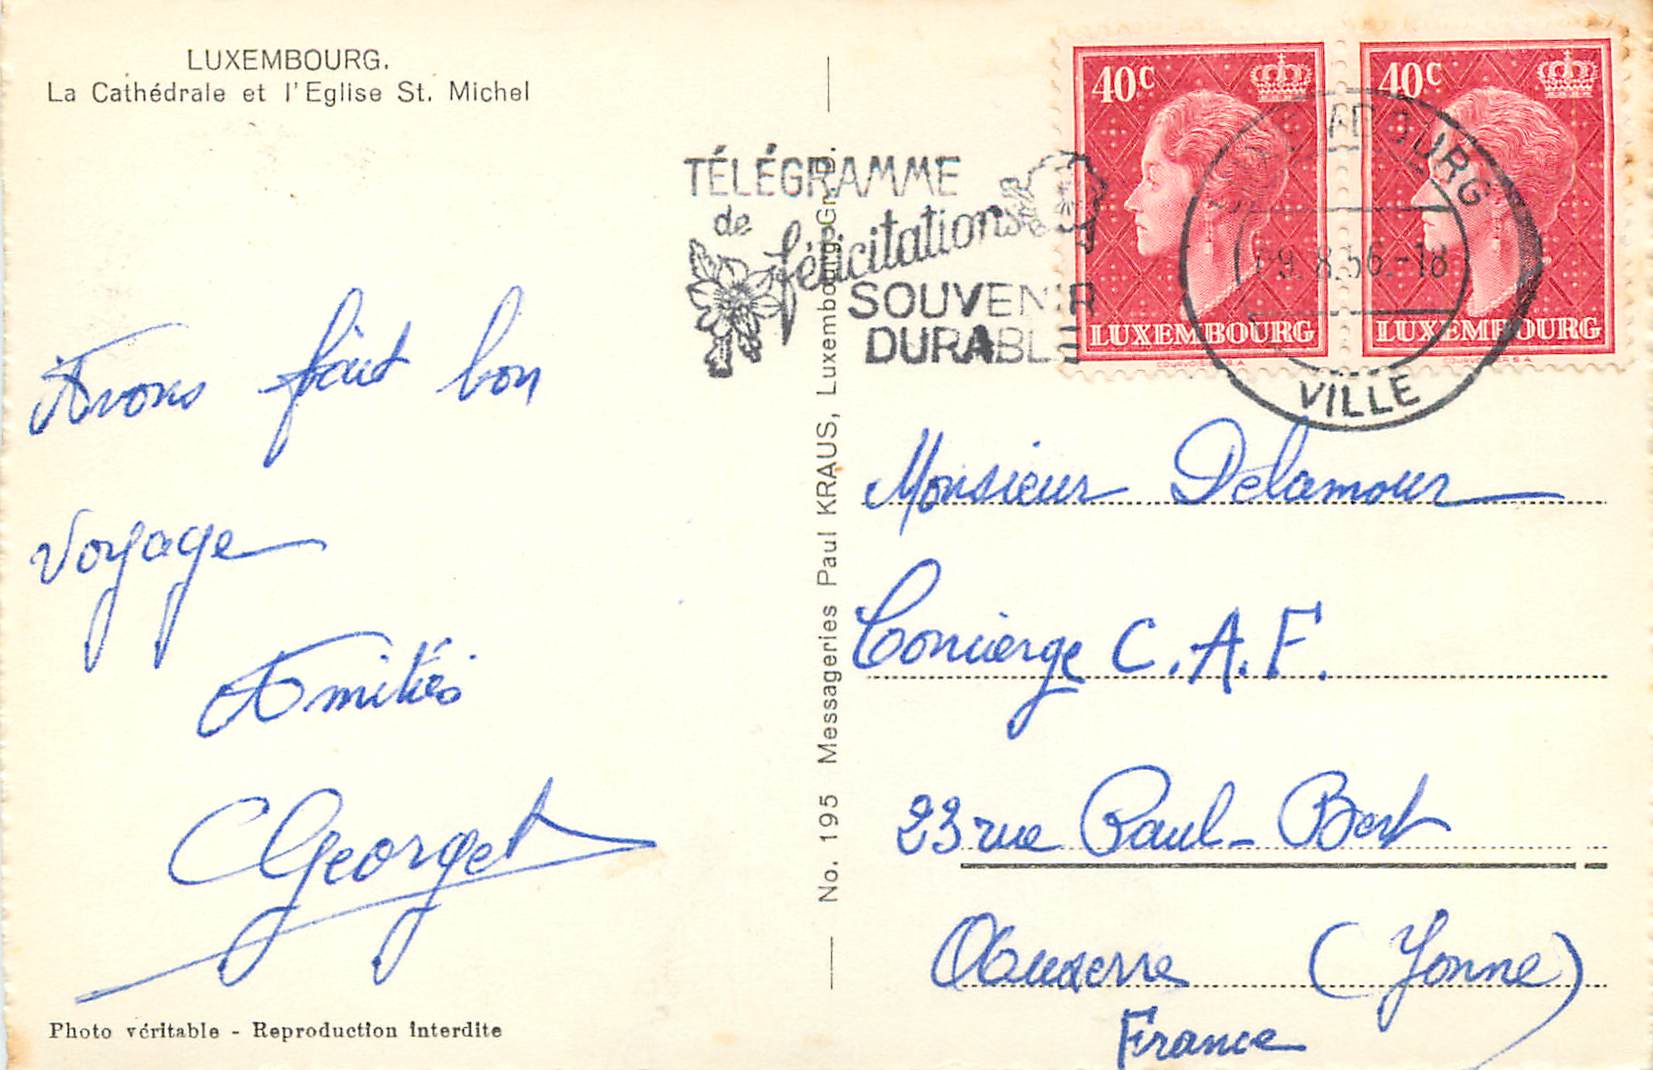 LUXEMBOURG.
La Cathédrale et l'Eglise St. Michel
Avons fait bon
voyage
Amitiés
Georget
Photo véritable - Reproduction interdite
No. 195 Messageries Paul KRAUS, Luxembourg-Gr.-D.
TÉLÉGRAMME
de
félicitations
SOUVENIR
DURABLE
40c
LUXEMBOURG
COURVOISIER S.A.
40c
LUXEMBOURG
COURVOISIER S.A.
VILLE
Monsieur Delamour
Concierge C.A.F.
23 rue Paul-Bert
Auxerre (Yonne)
France